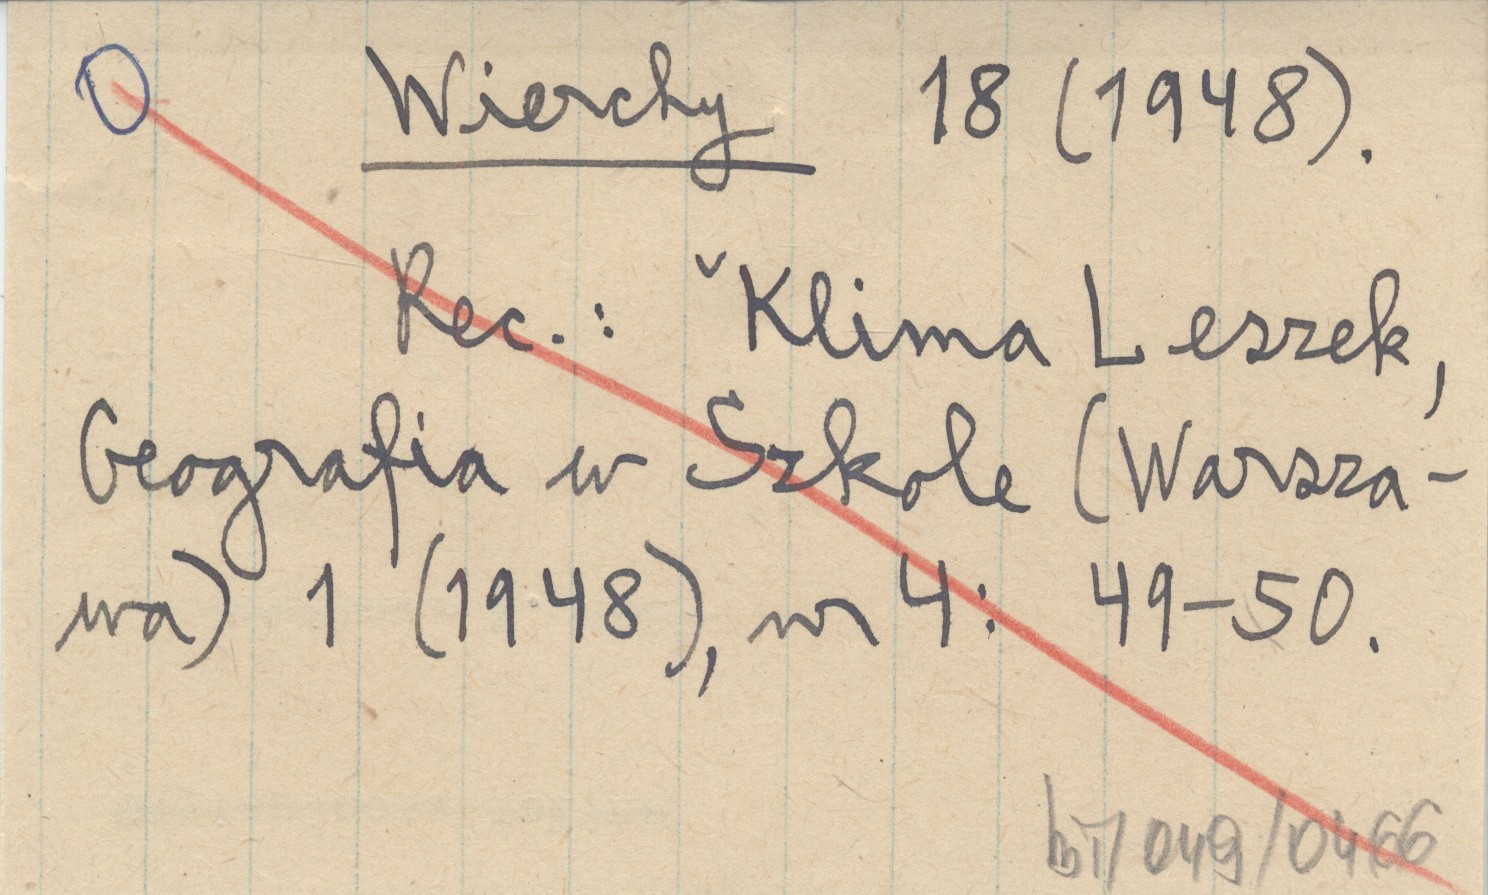 O Wierchy 18 (1948).
Rec.: ˇKlima Leszek,
Geografia w Szkole (Warsza-
wa) 1 (1948), nr 4: 49-50.
bi/049/0466